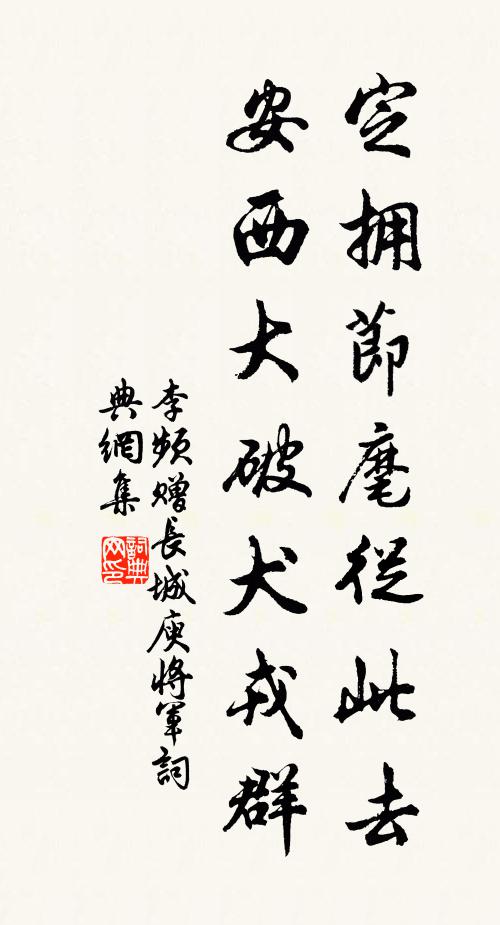 定擁節麾從此去
安西大破犬戎群
李頻贈長城庾將軍詞
典網集
詞典網印